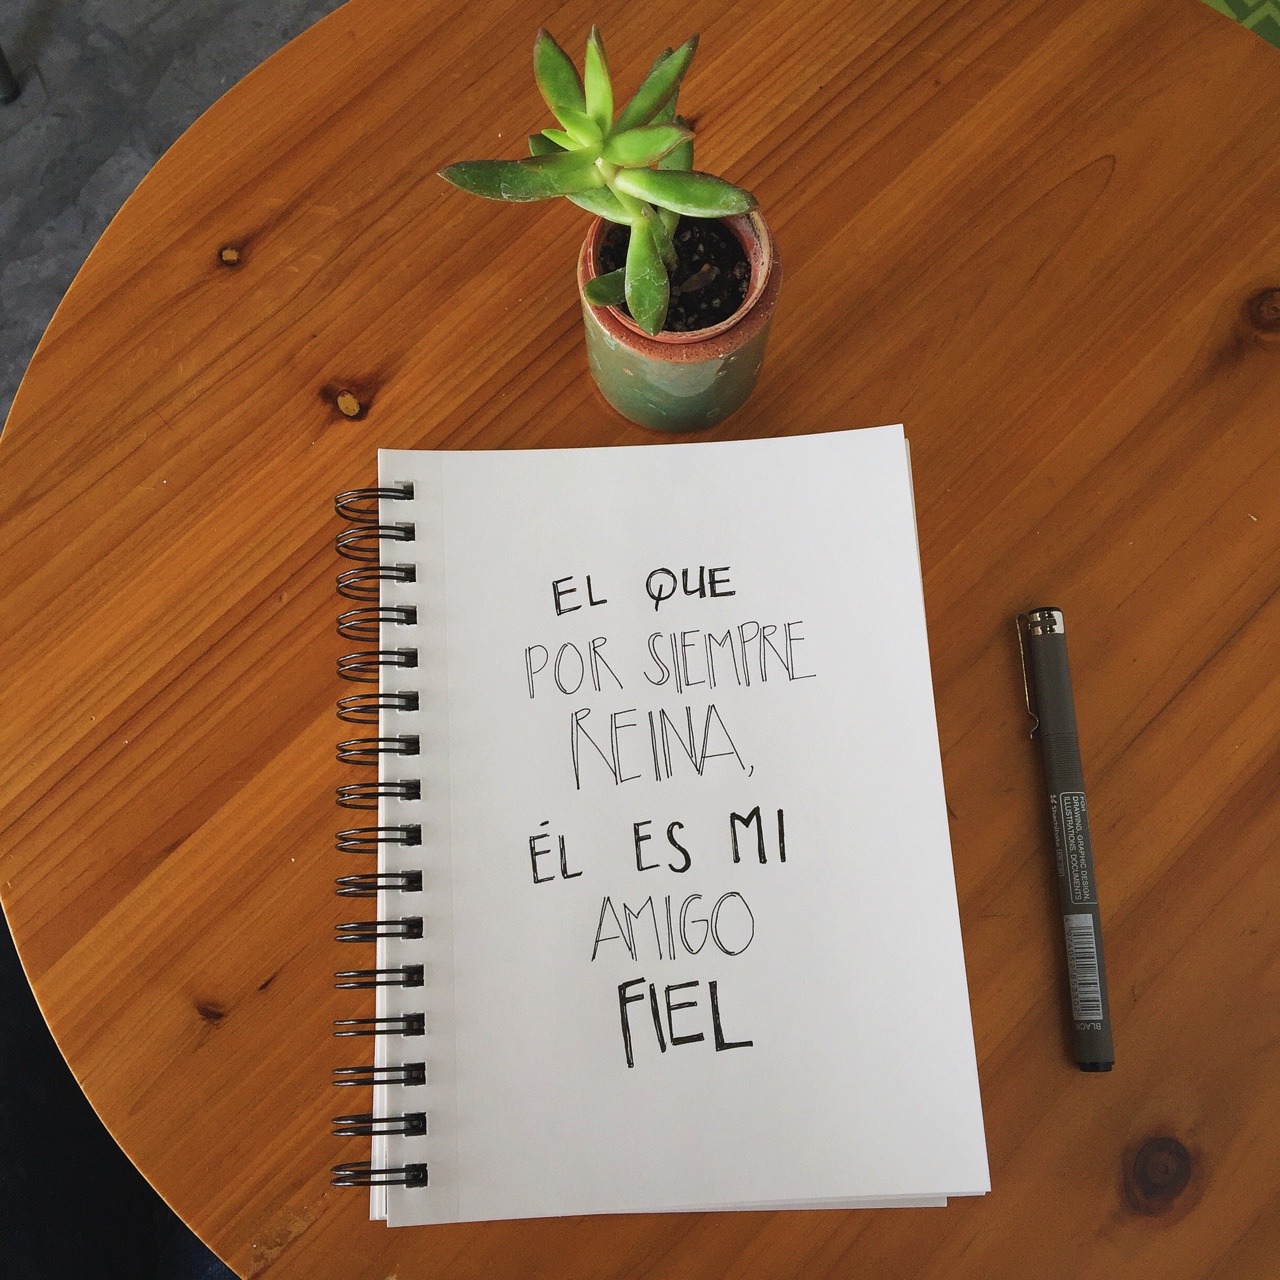 EL QUE
POR SIEMPRE
REINA,
ÉL ES MI
AMIGO
FIEL
FOR
DRAWING, GRAPHIC DESIGN,
ILLUSTRATIONS, DOCUMENTS
BLACK